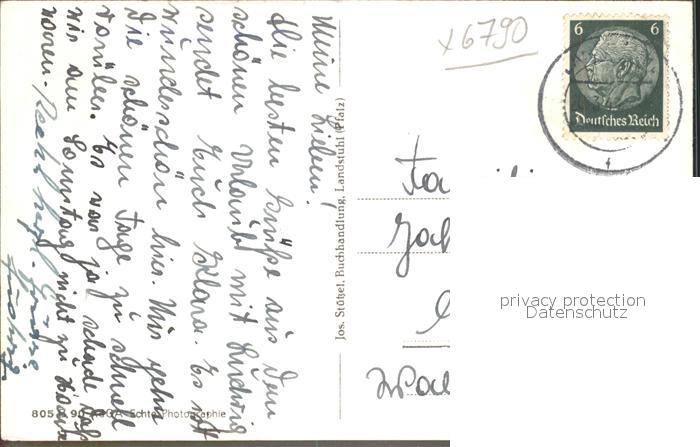 Meine Lieben!
Die besten Grüße aus dem
schönen Urlaub mit Ludwig
sendet Euch Klara. Es ist
wunderschön hier. Nur gehn
die schönen Tage zu schnell
vorüber. Es war ja schade daß
wir am Sonntag nicht zu Hause
waren. Recht herzl. Grüße
Ludwig
Jos. Stützel, Buchhandlung, Landstuhl (Pfalz)
x6790
6 6
Deutsches Reich
Fa
privacy protection
Datenschutz
805 90 Echte Photographie